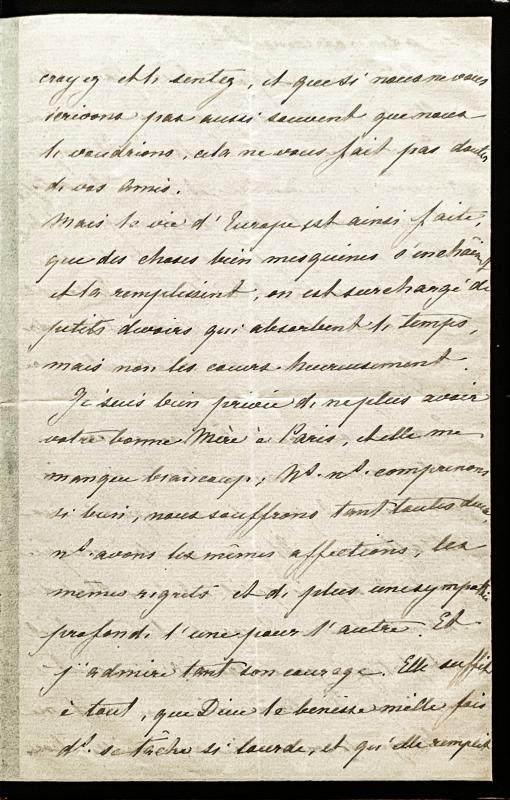 croyez et le sentez, et que si nous ne vous
écrivons pas aussi souvent que nous
le voudrions, cela ne vous fait pas douter
de vos amis.
Mais la vie d'Europe est ainsi faite,
que des choses bien mesquines s'enchaînent
et la remplissent, on est surchargé de
petits devoirs qui absorbent le temps,
mais non les cœurs heureusement.
Je suis bien privée de ne plus avoir
votre bonne Mère à Paris, et elle me
manque beaucoup; Ns. ns. comprenons
si bien, nous souffrons tant toutes deux,
ns. avons les mêmes affections, les
mêmes regrets et de plus une sympathie
profonde l'une pour l'autre. Et
j'admire tant son courage. Elle suffit
à tout, que Dieu la bénisse mille fois
ds. sa tâche si lourde, et qu'elle remplit